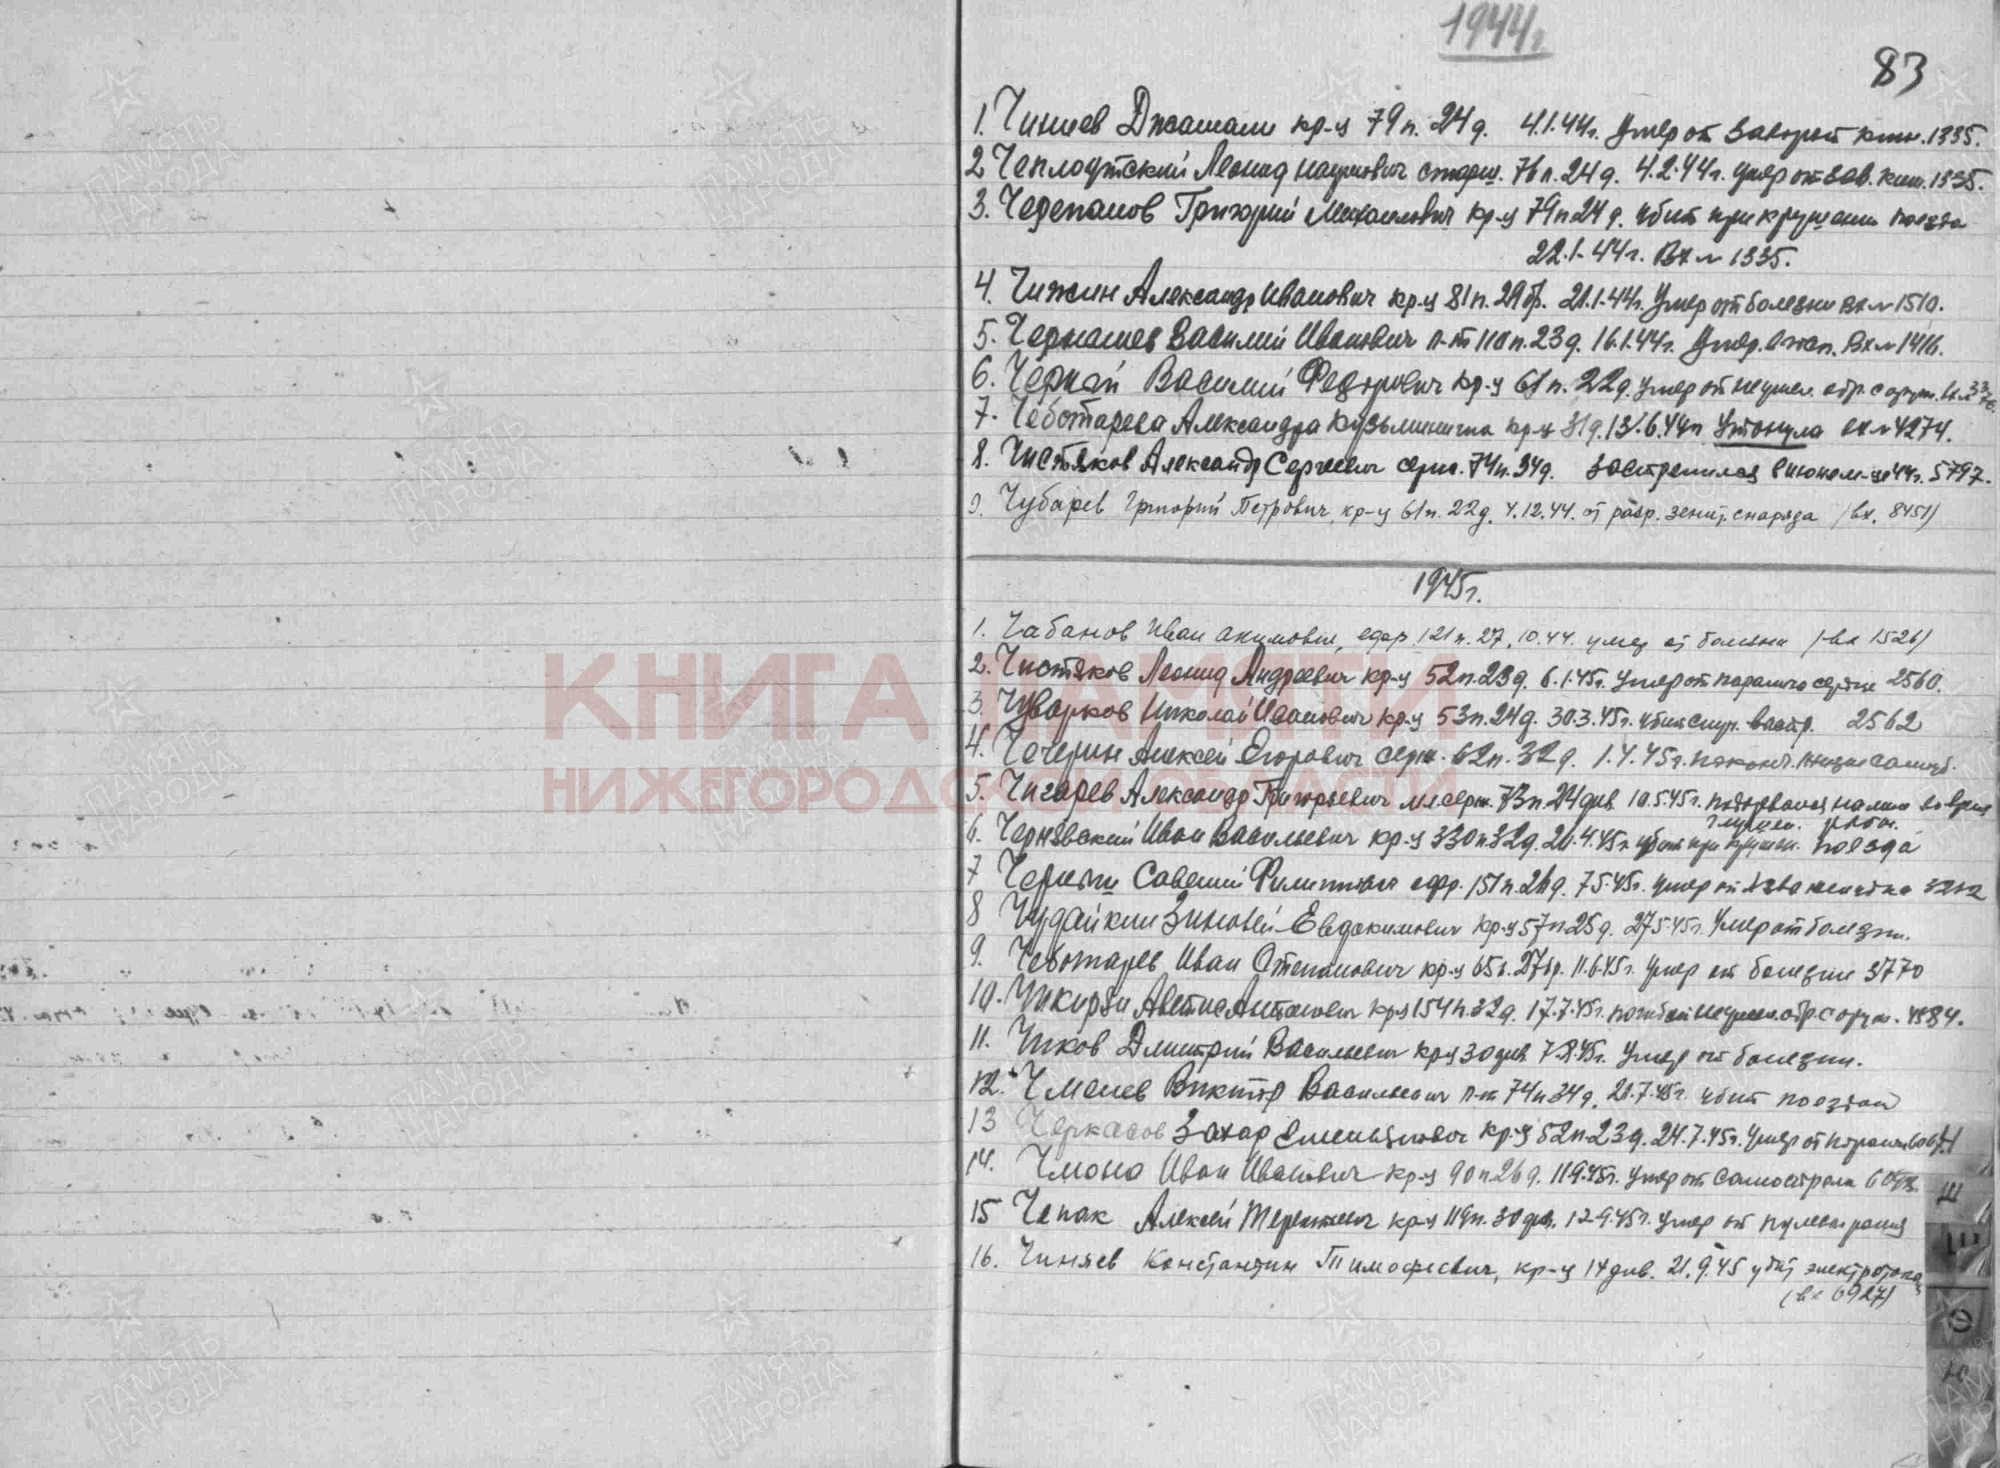 1944г.
83
1. Чиниев Джамали кр-ц 79 п. 24 д. 4.1.44г. Умер от заворот киш. 1335.
2 Чеплоутский Леонид Наумович старш. 76 п. 24 д. 4.2.44г. умер от зав. киш. 1335.
3. Черепанов Григорий Михайлович кр-ц 79 п 24 д. убит при крушении поезда
22.1.44г. Вх № 1335.
4. Чижин Александр Иванович кр-ц 81 п. 29 бр. 21.1.44г. Умер от болезни вх № 1510.
5. Чернышев Василий Иванович л-т 110 п. 23 д. 16.1.44г. Умер. Вх № 1416.
6. Черный Василий Федорович кр-ц 61 п. 22 д. умер от неумел. обр. с оруж. Вх №
7. Чеботарева Александра Кузьминична кр-ц 31 д. 13.6.44г Утонула вх № 4274.
8. Чистяков Александр Сергеевич серж. 74 п. 34 д. застрелился в июне м-це 44г. 5797.
9. Чубарев Григорий Петрович, кр-ц 61 п. 22 д. 4.12.44. от разр. зенит. снаряда (вх. 8451)
1945г.
1. Чабанов Иван Акимович, ефр. 121 п. 27.10.44. умер от болезни (вх 1526)
2. Чистяков Леонид Андреевич кр-ц 52 п. 23 д. 6.1.45г. умер от паралича сердца 2560.
3. Чуварков Николай Иванович кр-ц 53 п. 24 д. 30.3.45г. убит случ. выстр. 2562
4. Чечерин Алексей Егорович серж. 62 п. 32 д. 1.4.45г. поконч. жизнь самоуб.
5. Чигарев Александр Григорьевич мл серж. 73 п. 24 див 10.5.45г. подорвался на мине во время
6. Чернявский Иван Васильевич кр-ц 330 п 32 д. 20.4.45г. убит при крушен. поезда
7 Черныш Савелий Филиппович ефр. 151 п. 26 д. 7.5.45г. умер от
8 Чудайкин Зиновей Евдокимович кр-ц 57 п 25 д. 27.5.45г. Умер от болезни.
9. Чеботарев Иван Степанович кр-ц 65 б. 27 бр. 11.6.45г. умер от болезни 3770
10. Аветис Антонович кр-ц 154 п. 32 д. 17.7.45г. погиб от неумел. обр. с оруж. 4584.
11. Чиков Дмитрий Васильевич кр-ц 30 див 7.8.45г. умер от болезни.
12. Чмелев Виктор Васильевич л-т 74 п 34 д. 21.7.45г. убит поездом
13 Черкасов Захар Емельянович кр-ц 52 п. 23 д. 24.7.45г. умер от
14. Чмоно Иван Иванович кр-ц 90 п. 26 д. 11.9.45г. умер от самострела
15 Чепак Алексей Терентьевич кр-ц 119 п. 30 див. 12.9.45г. умер от пулевого ранения
16. Чиняев Константин Тимофеевич, кр-ц 14 див. 21.9.45 убит электротоком
(вх 6927)
Ш
Щ
Э
Ю
КНИГА ПАМЯТИ
НИЖЕГОРОДСКОЙ ОБЛАСТИ
ПАМЯТЬ
НАРОДА